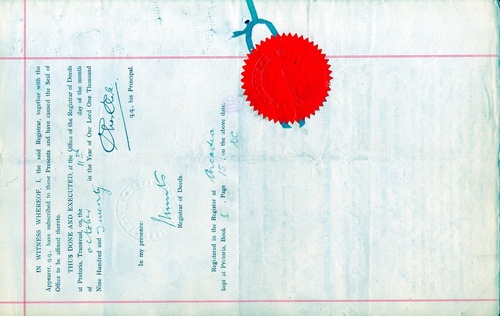 IN WITNESS WHEREOF, I, the said Registrar, together with the
Appearer, q.q., have subscribed to these Presents and have caused the Seal of
Office to be affixed thereto.
THUS DONE AND EXECUTED, at the Office of the Registrar of Deeds
at Pretoria, Transvaal, on the 11th day of the month
of October in the Year of Our Lord One Thousand
Nine Hundred and Twenty
q.q. his Principal.
In my presence:
Registrar of Deeds.
Registered in the Register of Arcadia
kept at Pretoria, Book Page 15, on the above date.